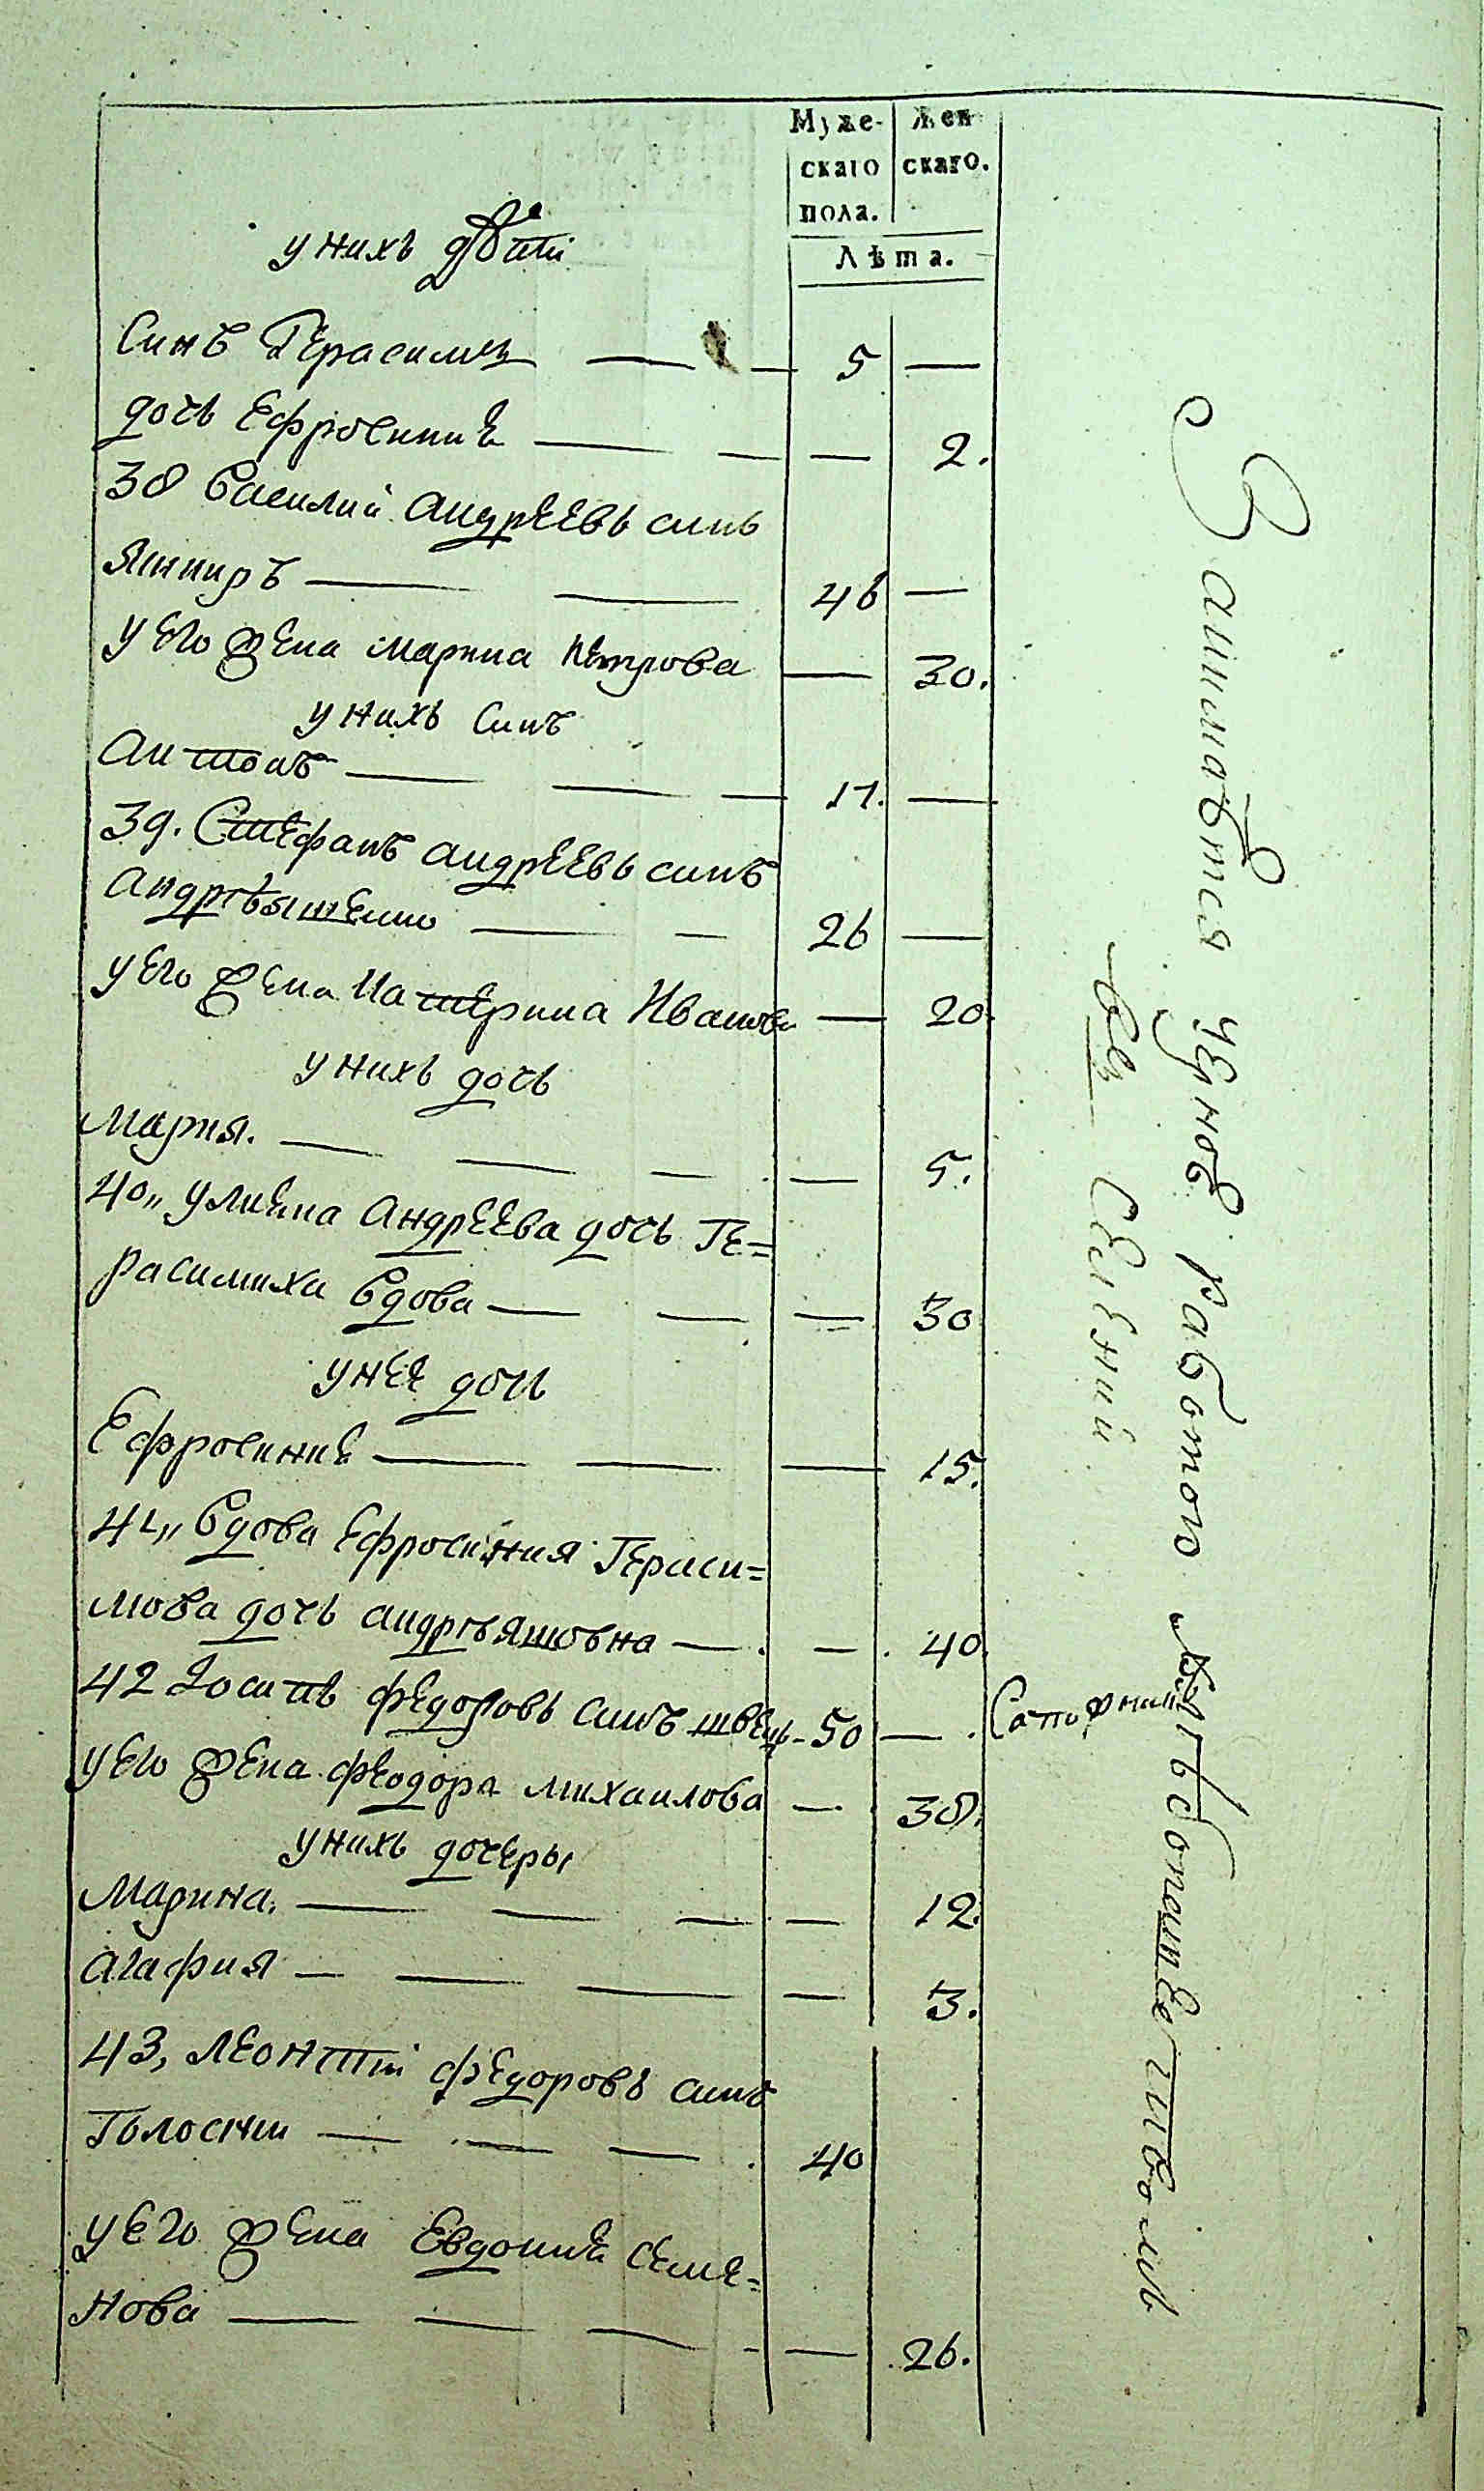 Муже-
скаго
пола.
Жен
скаго.
Лѣта.
у нихъ дѣти
Синъ Герасимъ — — 5 —
дочь Ефросиния — — — 2.
38 Василий андреевъ синъ
Яннирь — — 46 —
у его жена марина петрова — 30.
у нихъ синъ
антонъ — — — 17. —
39. Стефанъ андреевъ синъ
андрѣяшенко — — 26 —
у его жена Катерина Иванова — 20.
у нихъ дочь
Мария. — — — — 5.
40,, улиена андреева дочь Ге=
расимиха вдова — — — 30
у нее дочь
Ефросиние — — — 15.
41,, вдова Ефросиния Гераси=
мова дочь андрѣяшовна — — 40.
42 Іосипъ федоровъ синъ швець - 50 — Сапожник
у его жена феодора михаилова — 38.
у нихъ дочеры
Марина. — — — — 12.
агафия — — — — 3.
43, леонтий федоровъ синъ
Голосний — — — 40
у его жена Евдокия Семе=
нова — — — — 26.
Занимаются черною работою
въ Селений